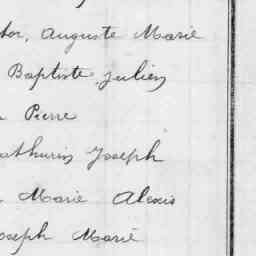 tor, Auguste Marie
Baptiste Julien
Pierre
athurin Joseph
Marie Alexis
oseph Marie